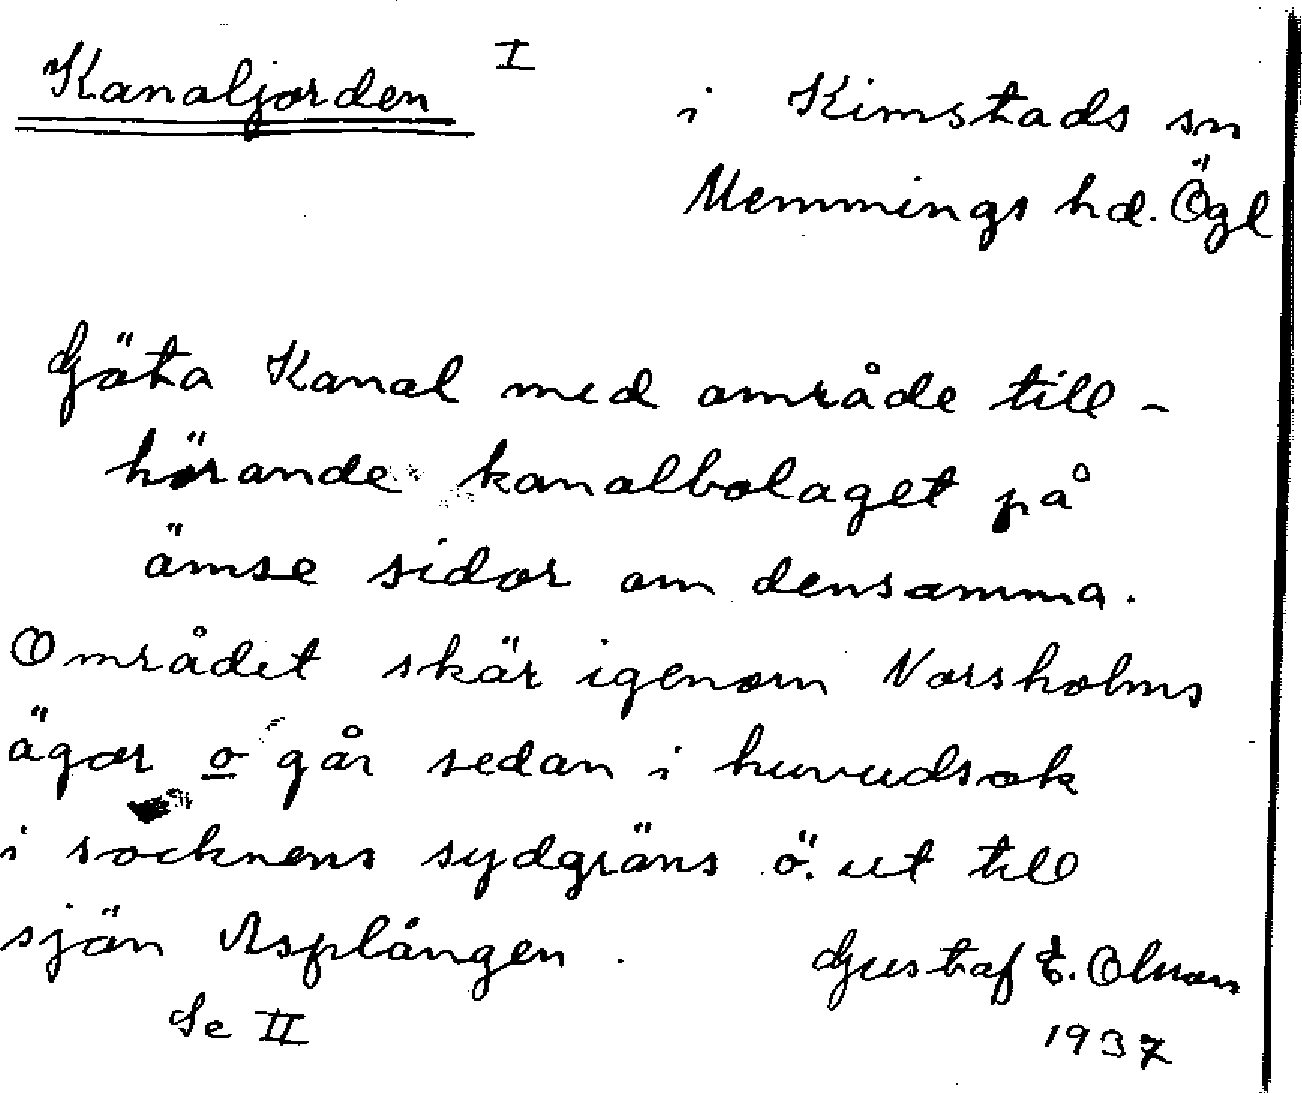 Kanaljorden I
i Kimstads sn
Memmings hd. Ögl
Göta Kanal med område till-
hörande kanalbolaget på
ömse sidor om densamma.
Området skär igenom Norsholms
ägor o går sedan i huvudsak
i socknens sydgräns ö. ut till
sjön Asplången.
Gustaf E. Olson
Se II
1937